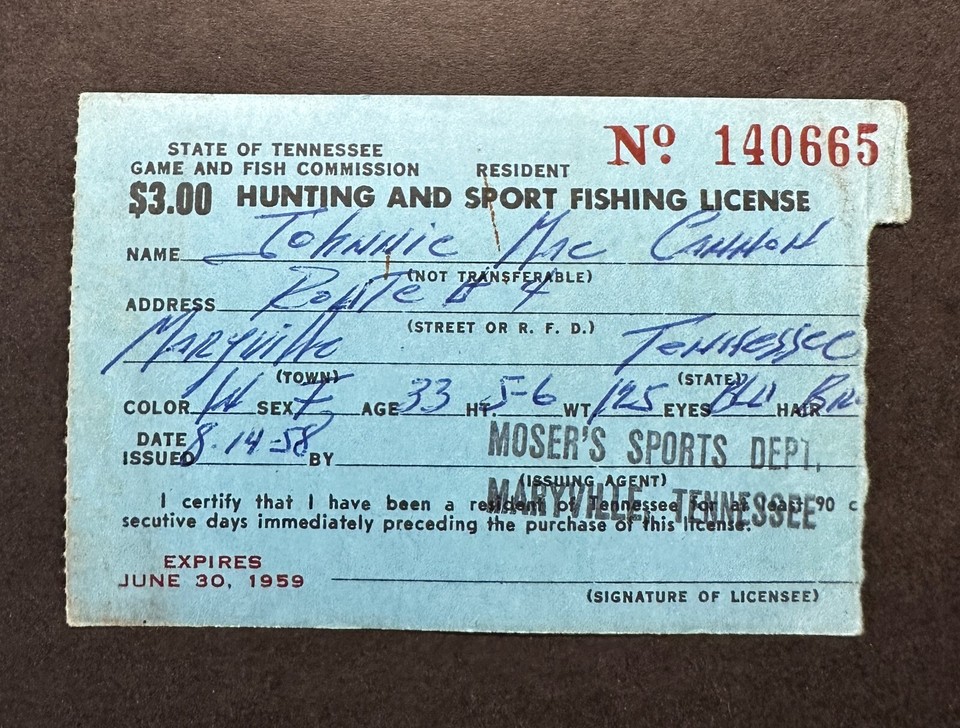 STATE OF TENNESSEE
GAME AND FISH COMMISSION RESIDENT Nº 140665
$3.00 HUNTING AND SPORT FISHING LICENSE
NAME Johnnie Mac Cannon
(NOT TRANSFERABLE)
ADDRESS Route # 4
(STREET OR R. F. D.)
Maryville Tennessee
(TOWN) (STATE)
COLOR W SEX F AGE 33 HT. 5-6 WT. 125 EYES BLU HAIR
DATE
ISSUED 8-14-58 BY MOSER'S SPORTS DEPT.
(ISSUING AGENT)
MARYVILLE, TENNESSEE
I certify that I have been a resident of Tennessee for at least 90 c
secutive days immediately preceding the purchase of this license.
EXPIRES
JUNE 30, 1959
(SIGNATURE OF LICENSEE)